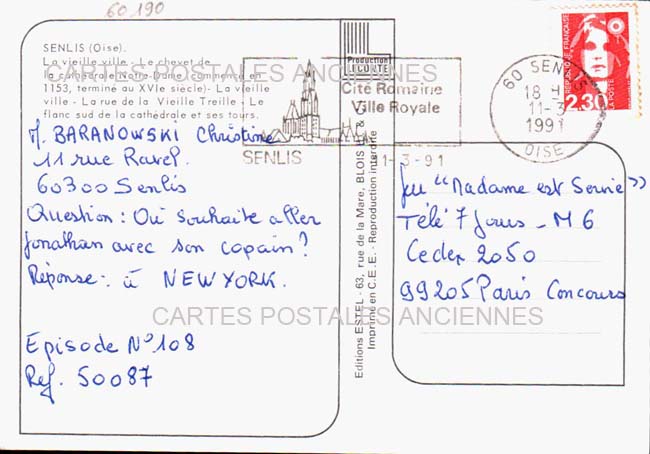 60190
SENLIS (Oise).
La vieille ville - Le chevet de
la cathédrale Notre-Dame (commencé en
1153, terminé au XVIe siècle)- La vieille
ville - La rue de la Vieille Treille - Le
flanc sud de la cathédrale et ses tours.
CARTES POSTALES ANCIENNES
M. BARANOWSKI Christine
11 rue Ravel.
60300 Senlis
Question : Où souhaite aller
Jonathan avec son copain ?
Réponse : à NEW YORK.
Episode N° 108
Ref. 50087
Production
LECONTE
Cité Romaine
Ville Royale
SENLIS
11-3-91
Editions ESTEL - 63, rue de la Mare, BLOIS
Imprimé en C.E.E. - Reproduction interdite
60 SENLIS
18 H
11-3
1991
OISE
REPUBLIQUE FRANÇAISE
2,30
LA POSTE
Jeu "Madame est Servie"
Télé 7 Jours - M6
Cedex 2050
99205 Paris Concours
CARTES POSTALES ANCIENNES